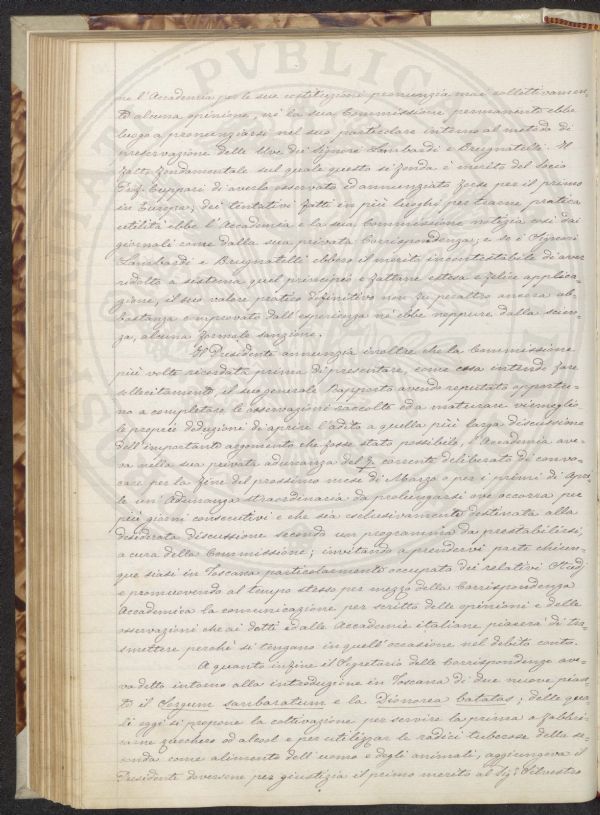 ne l'Accademia per le sue costituzioni pronunzia mai collettivamen-
te alcuna opinione, nè la sua Commissione permanente ebbe
luogo a pronunziarsi nel suo particolare intorno al metodo di
preservazione delle Uve dei Signori Lombardi e Brugnatelli. Il
fatto fondamentale sul quale questo si fonda è merito del Socio
Prof. Cuppari di averlo osservato ed annunziato forse per il primo
in Europa; dei tentativi fatti in più luoghi per trarne pratica
utilità ebbe l'Accademia e la sua Commissione notizia così dai
giornali come dalla sua privata Corrispondenza, e se i Signori
Lombardi e Brugnatelli ebbero il merito incontestabile di aver
ridotto a sistema quel principio e fattane estesa e felice applica-
zione, il suo valore pratico definitivo non fu peraltro ancora ab-
bastanza comprovato dall'esperienza nè ebbe neppure dalla scien-
za, alcuna formale sanzione.
Il Presidente annunzia inoltre che la Commissione
più volte ricordata prima di presentare, come essa intende fare
sollecitamente, il suo generale Rapporto avendo reputato opportu-
no a completare le osservazioni raccolte ed a maturare viemeglio
le proprie deduzioni di aprire l'adito a quella più larga discussione
dell'importante argomento che fosse stato possibile, l'Accademia ave-
va nella sua privata adunanza del 7. corrente deliberato di convo-
care per la fine del prossimo mese di Marzo o per i primi di Apri-
le un'Adunanza straordinaria da prolungarsi ove occorra per
più giorni consecutivi e che sia esclusivamente destinata alla
desiderata discussione secondo un programma da prestabilirsi,
a cura della Commissione; invitando a prendervi parte chiun-
que siasi in Toscana particolarmente occupato dei relativi Studj
e promuovendo al tempo stesso per mezzo della Corrispondenza
Accademica la comunicazione per scritto delle opinioni e delle
osservazioni che ai dotti e dalle Accademie italiane piacerà di tra-
smettere perchè si tengano in quell'occasione nel debito conto.
A quanto infine il Segretario delle Corrispondenze ave-
va detto intorno alla introduzione in Toscana di due nuove pian-
te il Sorgum sanbaratum e la Dionorea batatas; delle qua-
li oggi si propone la coltivazione per servire la prima a fabbri-
carne zucchero ed alcool e per utilizzar le radici tuberose della se-
conda come alimento dell'uomo e degli animali, aggiungeva il
Presidente doversene per giustizia il primo merito al Sig.r Silvestro